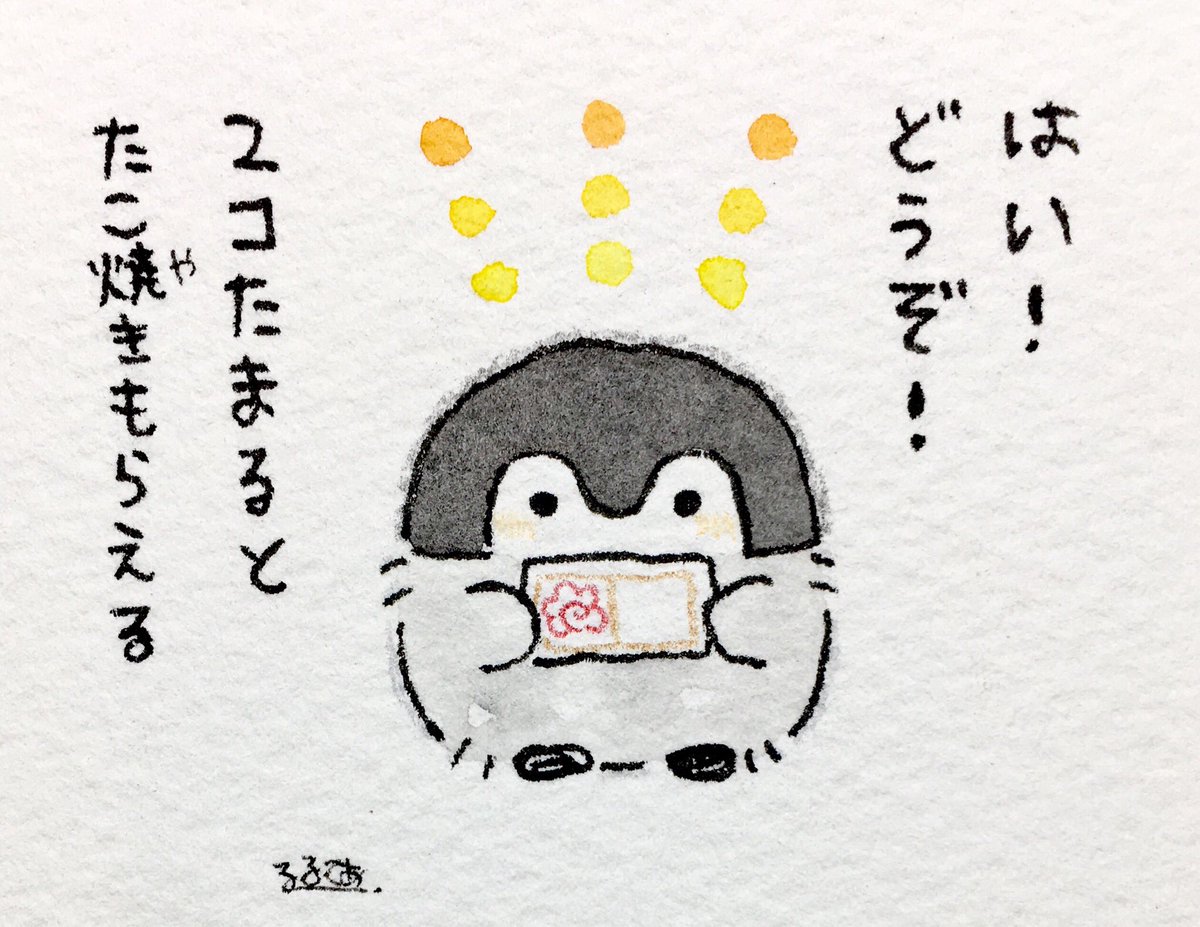 はい！
どうぞ！
2コたまると
たこ焼きもらえる
や
るるてあ.